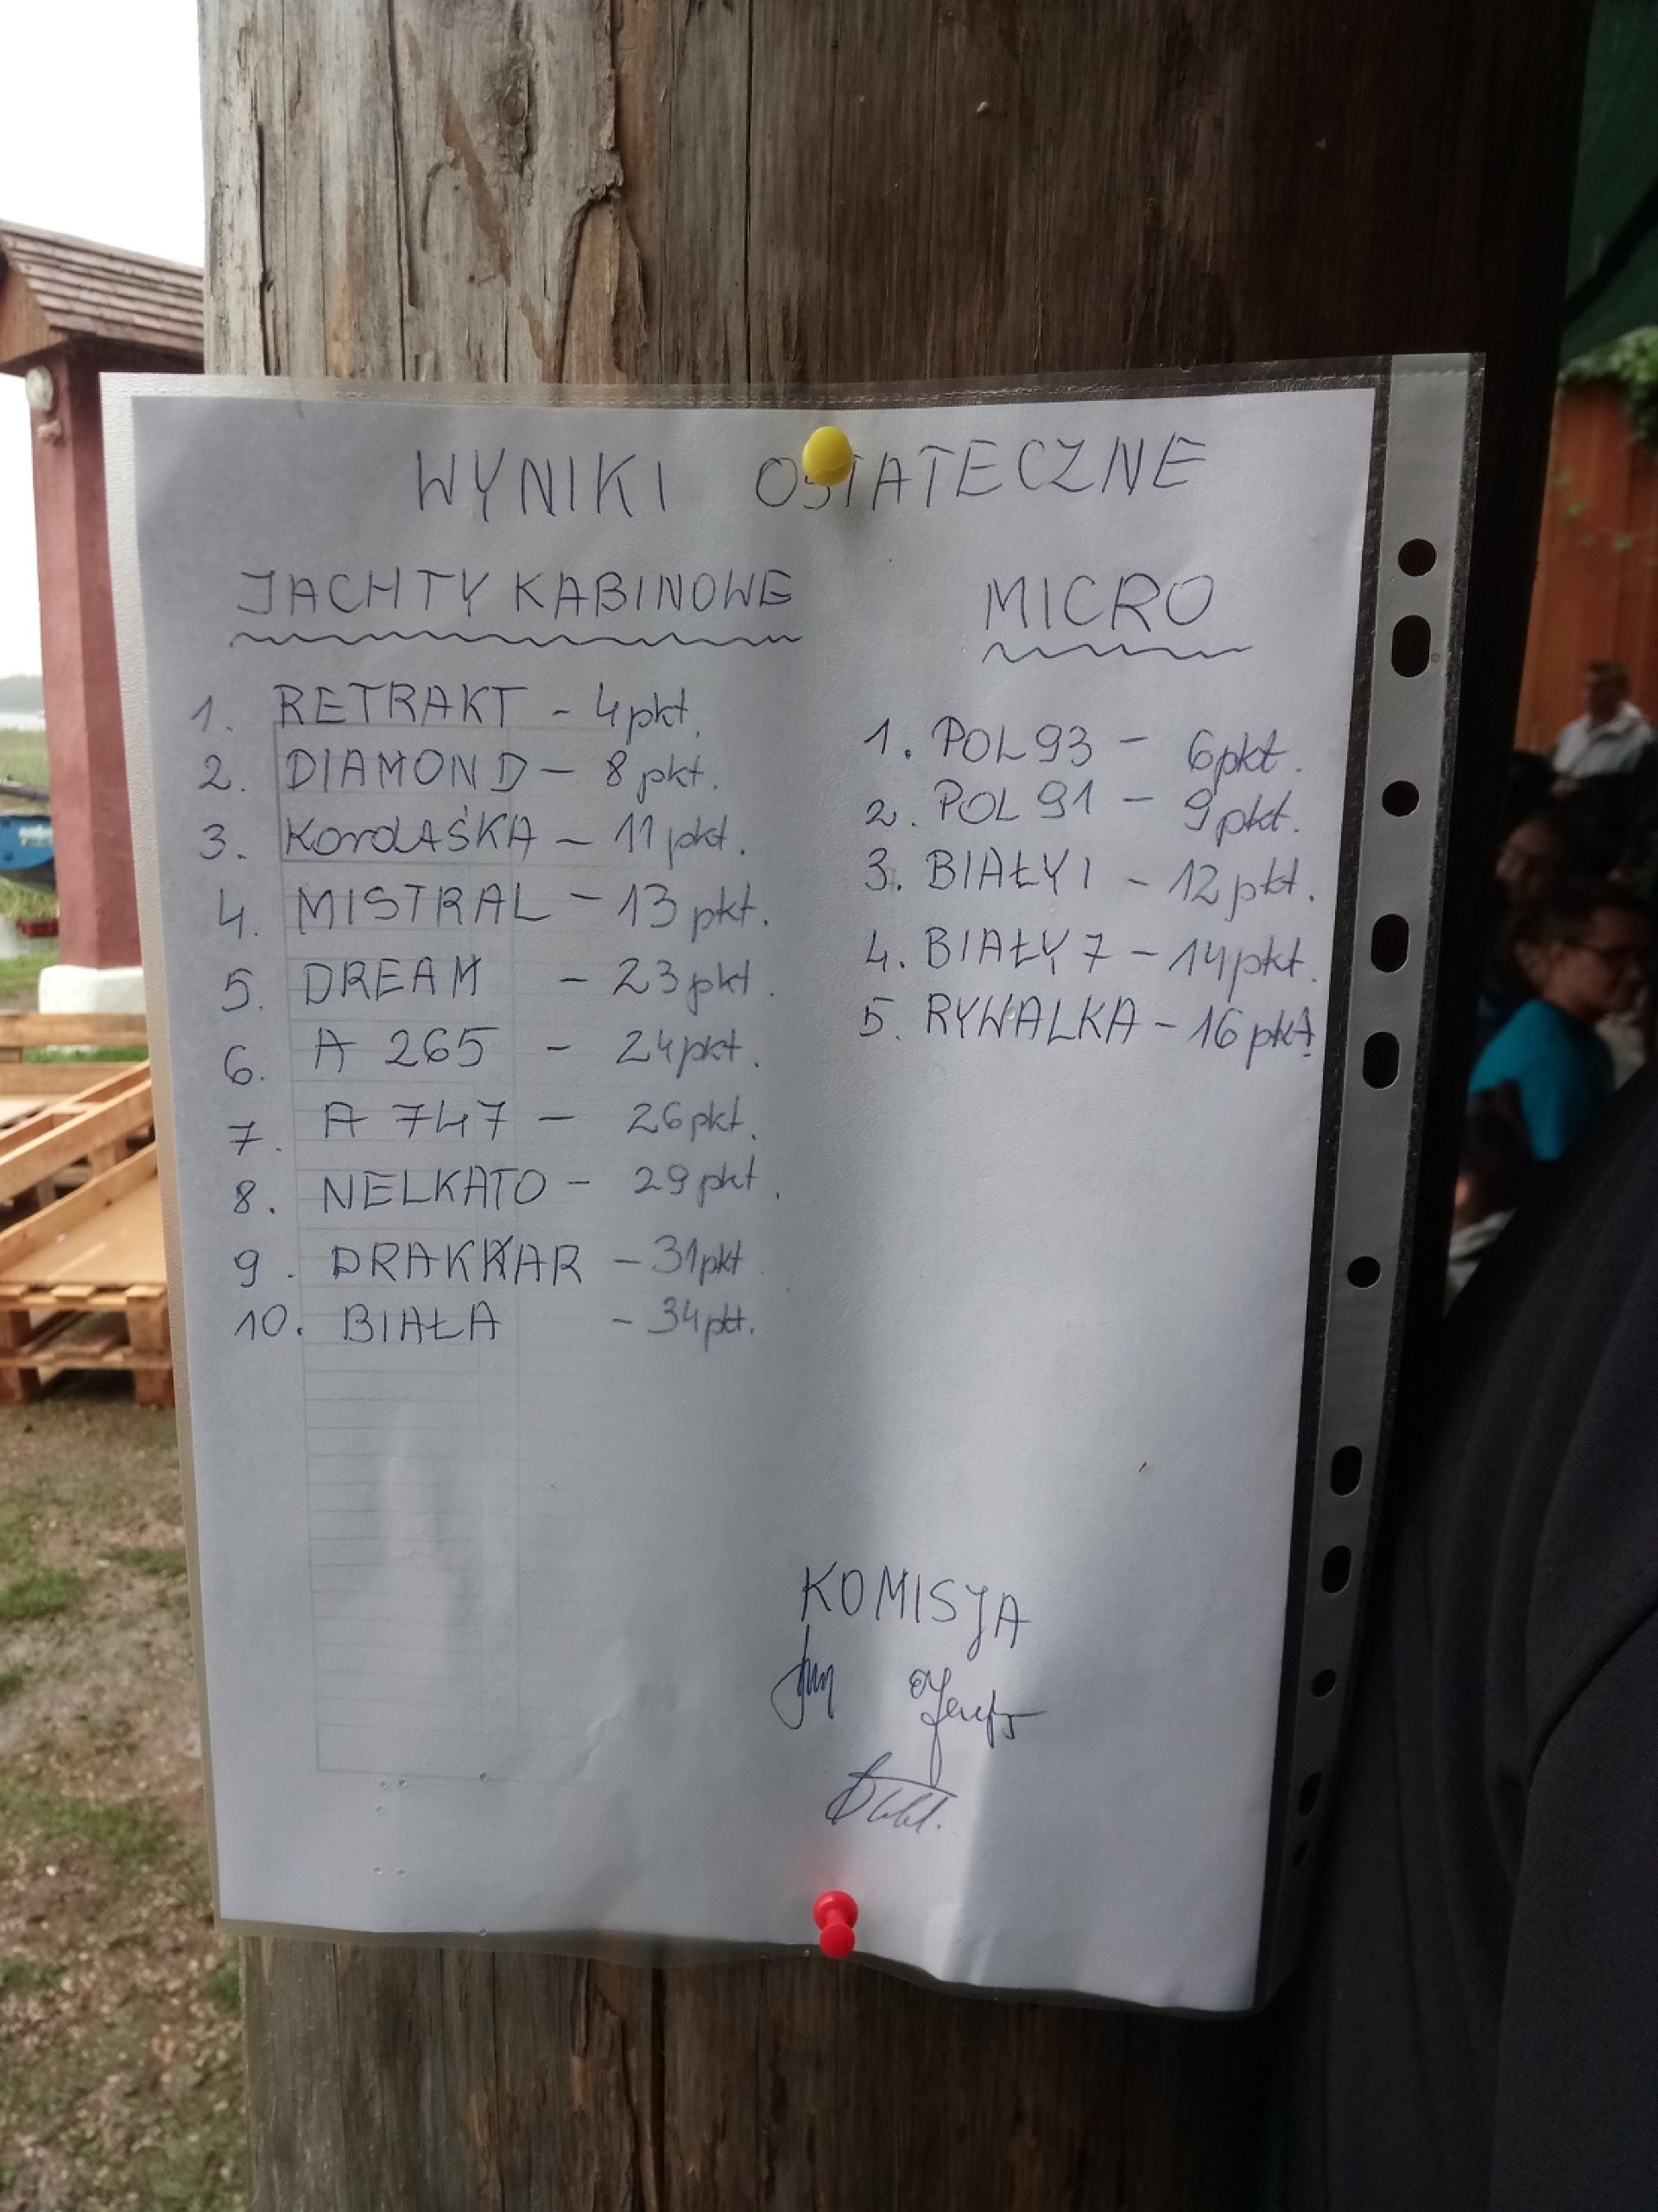 WYNIKI OSTATECZNE
JACHTY KABINOWE
1. RETRAKT - 4pkt.
2. DIAMOND - 8 pkt.
3. KordAŚKA - 11 pkt.
4. MISTRAL - 13 pkt.
5. DREAM - 23 pkt.
6. A 265 - 24 pkt.
7. A 747 - 26 pkt.
8. NELKATO - 29 pkt.
9. DRAKKAR - 31 pkt
10. BIAŁA - 34 pkt.
MICRO
1. POL 93 - 6pkt.
2. POL 91 - 9pkt.
3. BIAŁY 1 - 12 pkt.
4. BIAŁY 7 - 14 pkt.
5. RYWALKA - 16 pkt
KOMISJA